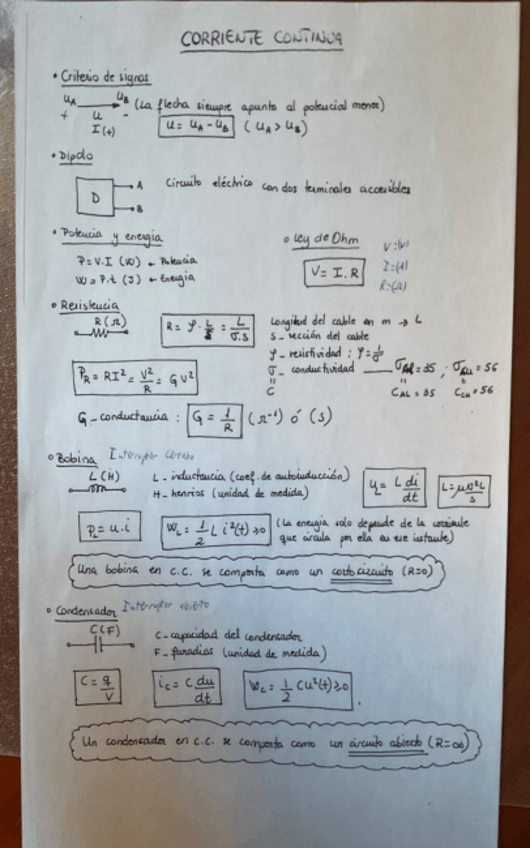 CORRIENTE CONTINUA
• Criterio de signos
u_A → u_B (La flecha siempre apunta al potencial menor)
+ u -
I (+) u = u_A - u_B (u_A > u_B)
• Dipolo
D A B Circuito eléctrico con dos terminales accesibles
• Potencia y energía
P = V.I (W) ← Potencia
W = P.t (J) ← Energía
• Ley de Ohm
V = I.R
V:(V)
I:(A)
R:(Ω)
• Resistencia
R (Ω)
R = ρ · L/S = L/σ.S
Longitud del cable en m → L
S - sección del cable
ρ - resistividad : ρ = 1/σ
σ - conductividad σ_AL = 35 ; σ_cu = 56
" " "
C C_AL = 35 C_cu = 56
P_R = RI² = V²/R = GV²
G - conductancia : G = 1/R (Ω⁻¹) ó (S)
• Bobina Interruptor cerrado
L (H)
L - inductancia (coef. de autoinducción)
H - henrios (unidad de medida)
u_L = L di/dt
L = μN²L/S
P_L = u.i
W_L = 1/2 L i²(t) ≥ 0
(La energía solo depende de la corriente
que circula por ella en ese instante)
Una bobina en c.c. se comporta como un cortocircuito (R=0)
• Condensador Interruptor abierto
C (F)
C - capacidad del condensador
F - faradios (unidad de medida)
C = q/V
i_c = C du/dt
W_c = 1/2 C u²(t) ≥ 0 .
Un condensador en c.c. se comporta como un circuito abierto (R=∞)